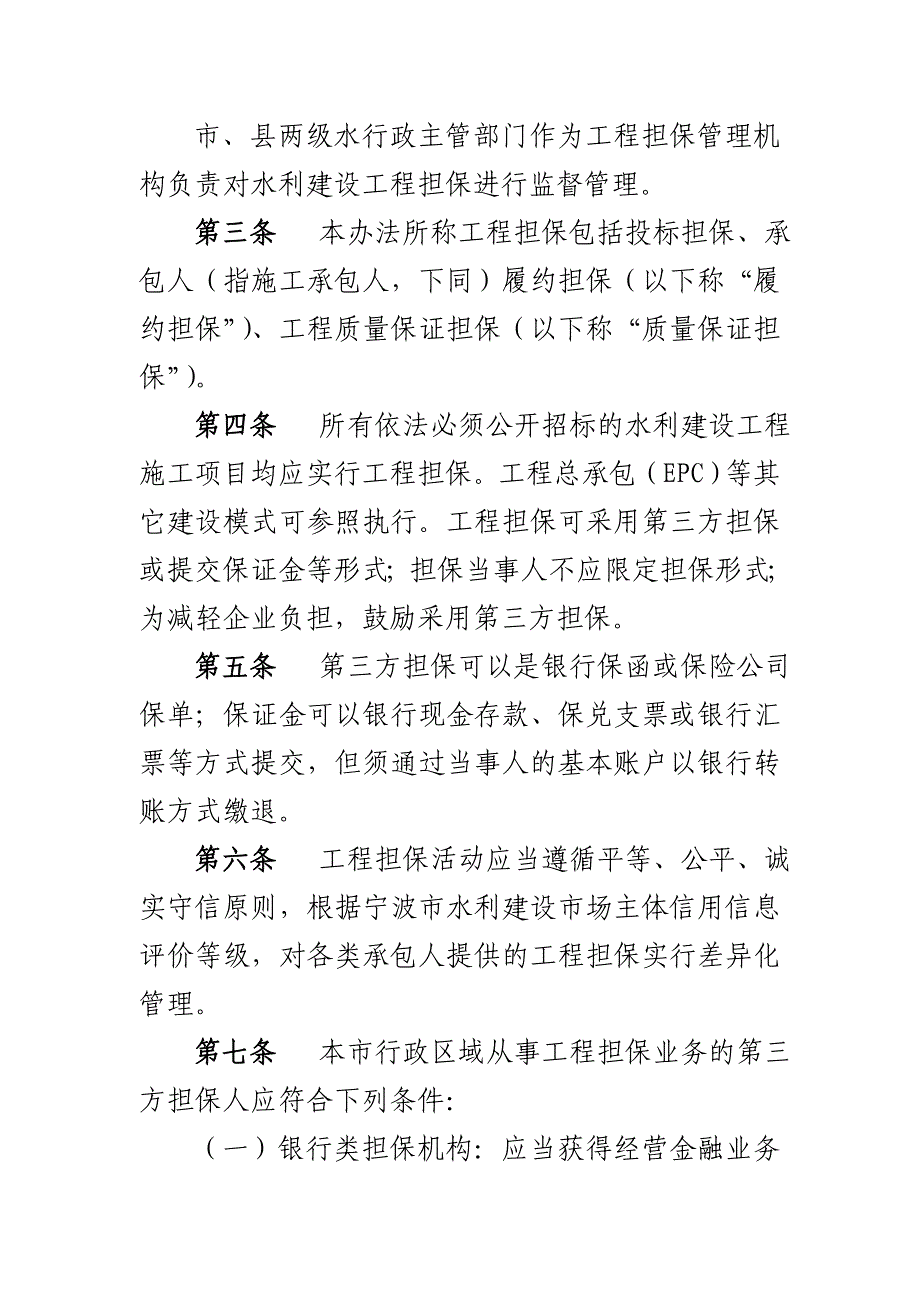 市、县两级水行政主管部门作为工程担保管理机
构负责对水利建设工程担保进行监督管理。
第三条　本办法所称工程担保包括投标担保、承
包人（指施工承包人，下同）履约担保（以下称“履
约担保”）、工程质量保证担保（以下称“质量保证担
保”）。
第四条　所有依法必须公开招标的水利建设工程
施工项目均应实行工程担保。工程总承包（EPC）等其
它建设模式可参照执行。工程担保可采用第三方担保
或提交保证金等形式；担保当事人不应限定担保形式；
为减轻企业负担，鼓励采用第三方担保。
第五条　第三方担保可以是银行保函或保险公司
保单；保证金可以银行现金存款、保兑支票或银行汇
票等方式提交，但须通过当事人的基本账户以银行转
账方式缴退。
第六条　工程担保活动应当遵循平等、公平、诚
实守信原则，根据宁波市水利建设市场主体信用信息
评价等级，对各类承包人提供的工程担保实行差异化
管理。
第七条　本市行政区域从事工程担保业务的第三
方担保人应符合下列条件：
（一）银行类担保机构：应当获得经营金融业务